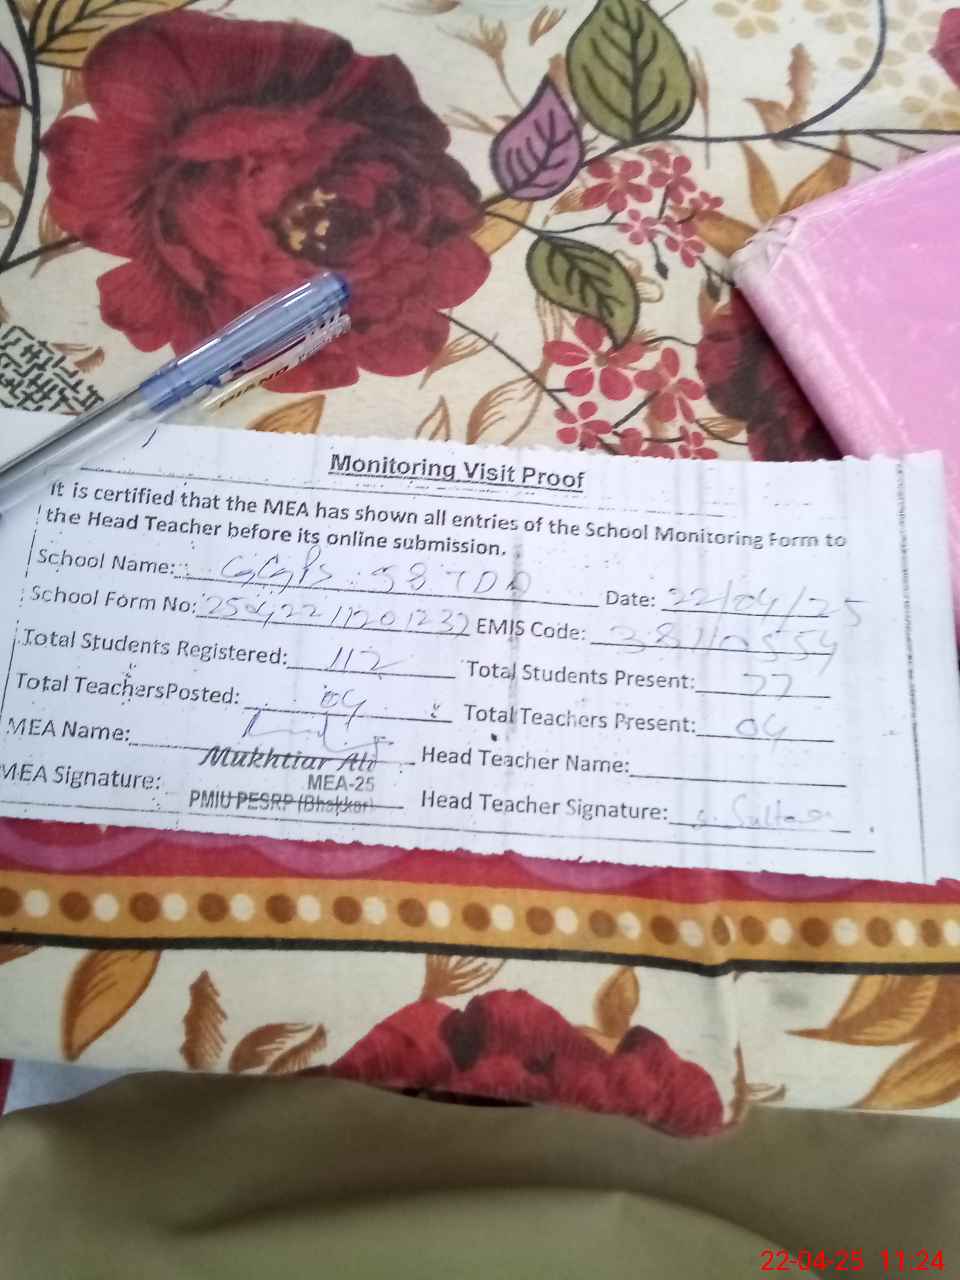 PIANO
Monitoring Visit Proof
It is certified that the MEA has shown all entries of the School Monitoring Form to
the Head Teacher before its online submission.
School Name: GGPS 58 TDA Date: 22/04/25
School Form No: EMIS Code: 38110554
Total Students Registered: 112 Total Students Present: 77
Total TeachersPosted: 04 Total Teachers Present: 04
MEA Name: Head Teacher Name:
Mukhtiar Ali
MEA-25
MEA Signature: PMIU PESRP (Bhakkar) Head Teacher Signature:
22-04-25 11:24